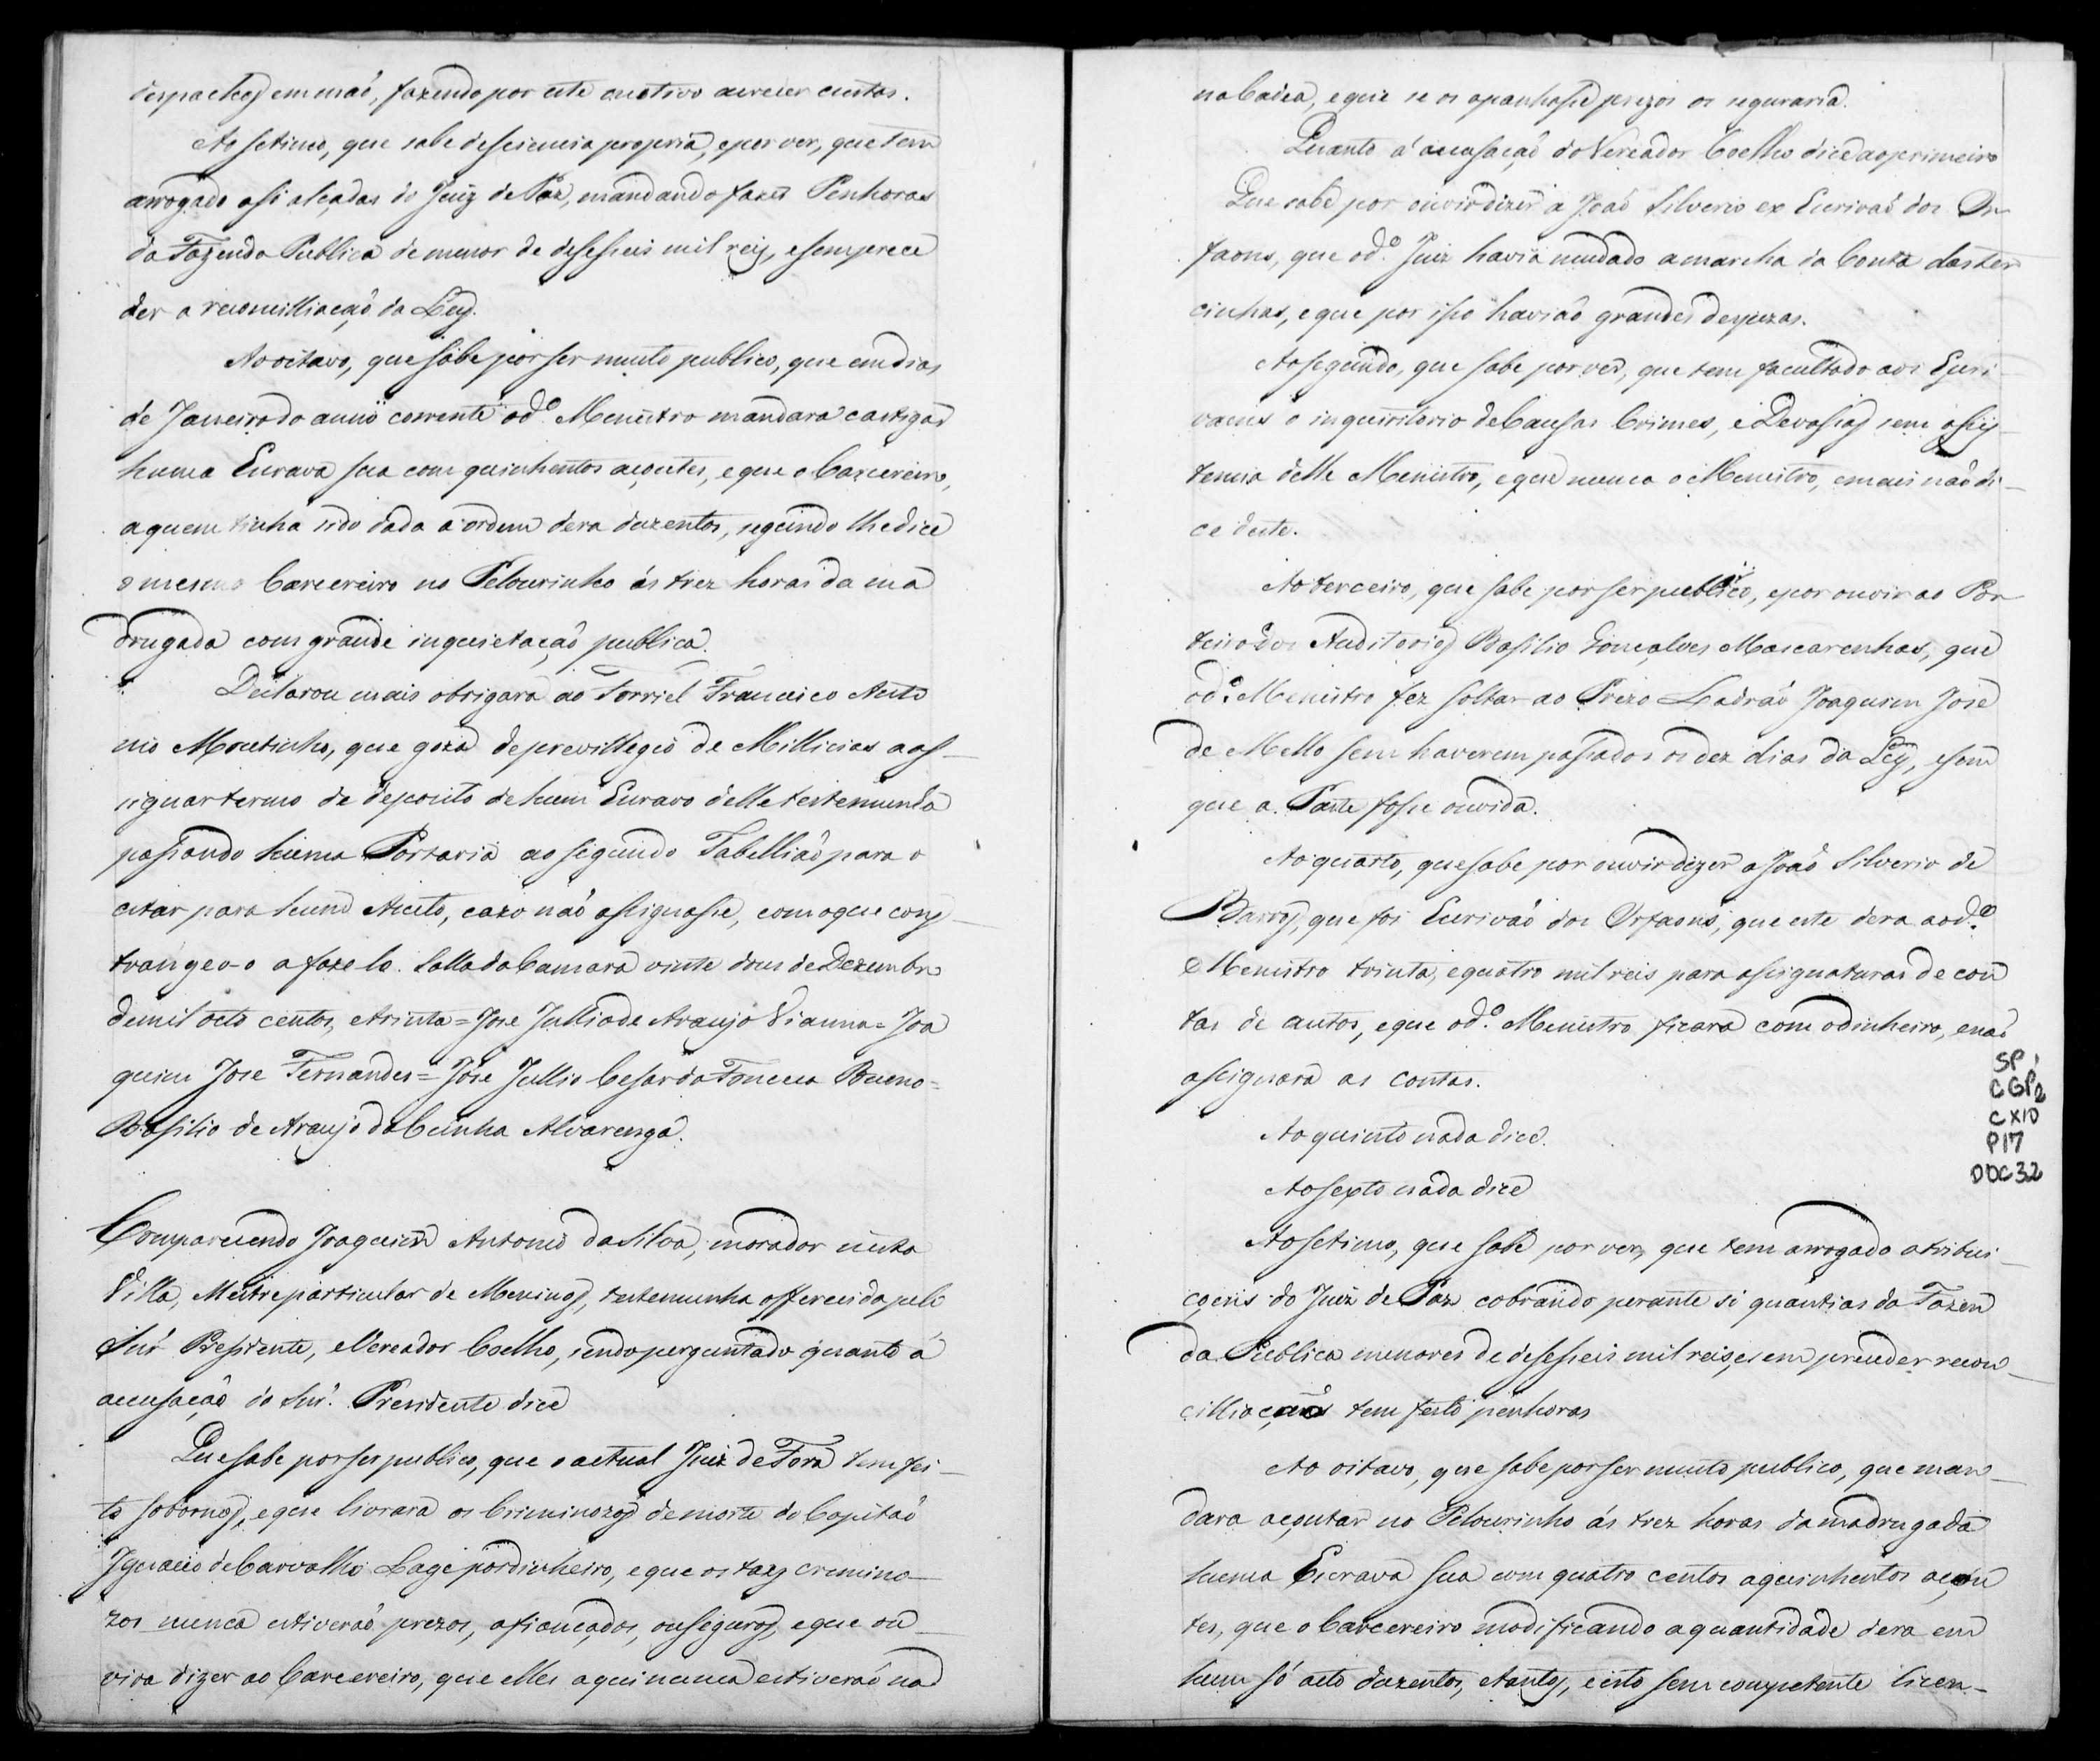 despachos em maõ, fazendo por este motivo acrecer custas.
Ao setimo, que sabe desciencia propria, epor ver, que tem
arrogado asi alçadas do Juiz de Paz, mandando fazer Penhoras
da Fazenda Publica de menor de desesseis mil reis, esemprece
der a reconcilliaçaõ da Ley.
Ao oitavo, que sabe por ser muito publico, que em dias
de Janeiro do anno corrente od.º Menistro mandara castigar
huma Escrava sua com quinhentos açoutes, eque o Carcereiro,
aquem tinha sido dada a ordem dera duzentos, segundo lhe dice
o mesmo Carcereiro no Pelourinho ás trez horas da ma
drugada com grande inquietaçaõ publica.
Declarou mais obrigara ao Forriel Francisco Anto
nio Moutinho, que goza deprevillegio de Millicias a as-
signar termo de deposito de hum Escravo delle testemunha
passando huma Portaria ao segundo Tabelliaõ para o
citar para hum Aucto, cazo naõ assignasse, com oque cons-
trangeo-o a faze lo. Salla da Camara vinte dous de Dezembro
de mil oito centos, etrinta = Jose Jullio de Araujo Vianna = Joa
quim Jose Fernandes = Jose Jullio Cesar da Fonceca Bueno =
Basilio de Araujo da Cunha Alvarenga.
Comparecendo Joaquim Antonio da Silva, morador nesta
Villa, Mestre particular de Meninos, testemunha offerecida pelo
Snr. Presidente, eVereador Coelho, sendo perguntado quanto á
accusaçaõ do Snr. Presidente dice
Que sabe por ser publico, que o actual Juiz de Fora tem fei-
to sobornos, eque livrara os Criminozos de morte do Capitaõ
Ignacio de Carvalho Lage por dinheiro, eque os taes crimino-
zos nunca estiveraõ prezos, afiançados, ou seguros, eque ou-
vira dizer ao Carcereiro, que elles aqui nunca estiveraõ na
na Cadea, eque se os apanhasse prezos os seguraria.
Quanto á accusaçaõ do Vereador Coelho dice ao primeiro
Que sabe por ouvir dizer a Joaõ Silverio ex Escrivaõ dos Or
faons, que od.º Juiz havia mudado a marcha da Conta das ter
cinhas, eque por isso haviaõ grandes despezas.
Ao segundo, que sabe por ver, que tem facultado aos Escri-
vaens o inquiritorio de Causas Crimes, e Devassas sem assis-
tencia delle Menistro, eque nunca o Menistro, emais naõ di-
ce deste.
Ao terceiro, que sabe por ser publico, epor ouvir ao Por
teiro dos Auditorios Basilio Gonçalves Mascarenhas, que
od.º Menistro fez soltar ao Prezo Ladraõ Joaquim Jose
de Mello sem haverem passados os dez dias da Ley, esem
que a Parte fosse ouvida.
Ao quarto, que sabe por ouvir dizer a Joaõ Silverio de
Barros, que foi Escrivaõ dos Orfaons, que este dera aod.º
Menistro trinta, equatro mil reis para assignaturas de con
tas de autos, eque od.º Menistro ficara com odinheiro, enaõ
assignara as contas.
Ao quinto nada dice.
Ao sexto nada dice
Ao setimo, que sabe por ver, que tem arrogado atribui-
çoens do Juiz de Paz cobrando perante si quantias da Fazen
da Publica menores de desesseis mil reis, esem preceder recon-
cilliaçaõ tem feito penhoras
Ao oitavo, que sabe por ser muito publico, que man-
dara açoutar no Pelourinho ás trez horas da madrugada
huma Escrava sua com quatro centos a quinhentos açou
tes, que o Carcereiro modificando a quantidade dera em
hum só acto duzentos, etantos, eisto sem competente licen-
SP
CGP2
CX10
P17
DOC32